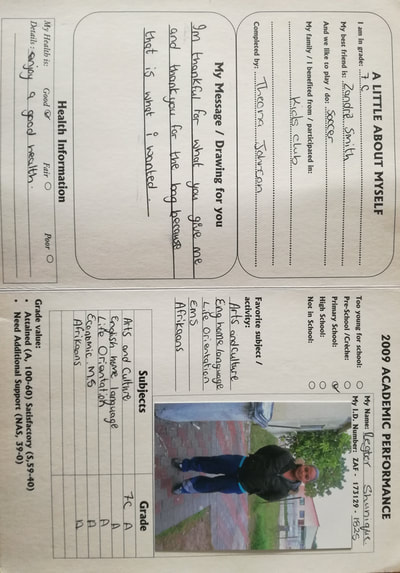 A LITTLE ABOUT MYSELF
I am in grade: 7C
My best friend is: Zandre Smith
And we like to play / do: soccer
My family / I benefited from / participated in:
Kids club
Completed by: Theona Johnson
My Message / Drawing for you
Im thankful for what you give me
and thank you for the bag because
that is what i wanted.
Health Information
My Health is: Good Fair Poor
Details: enjoy a good health.
2009 ACADEMIC PERFORMANCE
My Name: Shunique
My I.D. Number: ZAF - 173129 - 1825
Too young for school:
Pre-School /Crèche:
Primary School:
High School:
Not in School:
Favorite subject /
activity:
Arts and culture
Eng home language
Life Orientation
EMS
Afrikaans
Subjects Grade
7C
Arts and Culture A
English home language A
Life Orientation A
Economic MS A
Afrikaans
Grade value:
• Attained (A, 100-60) Satisfactory (S,59-40)
• Need Additional Support (NAS, 39-0)